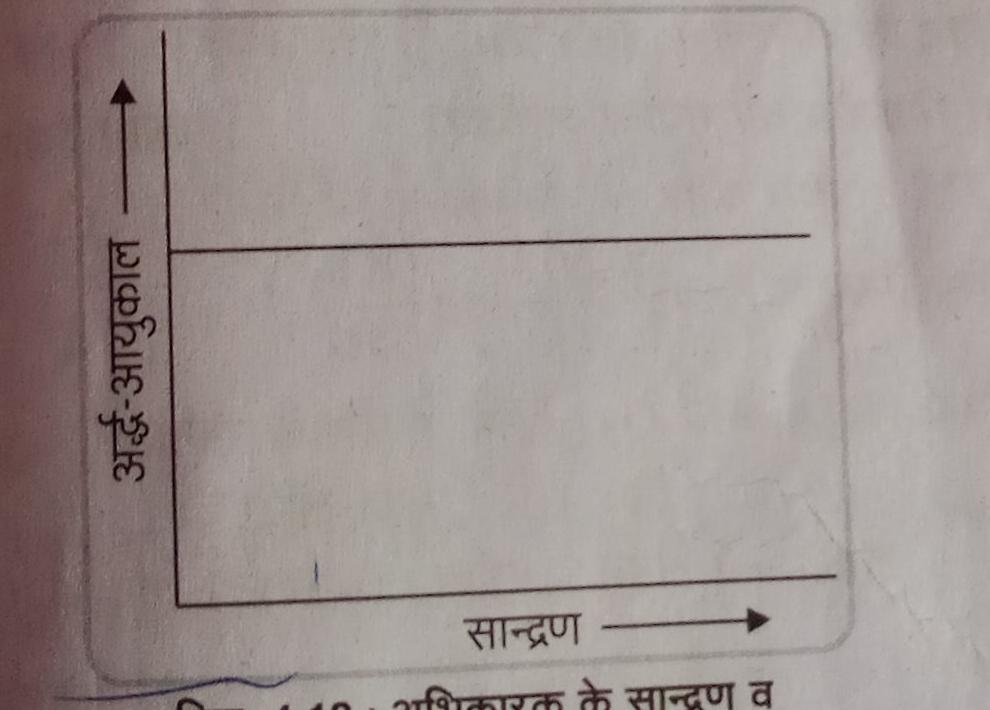 अर्द्ध-आयुकाल
सान्द्रण
अभिकारक के सान्द्रण व